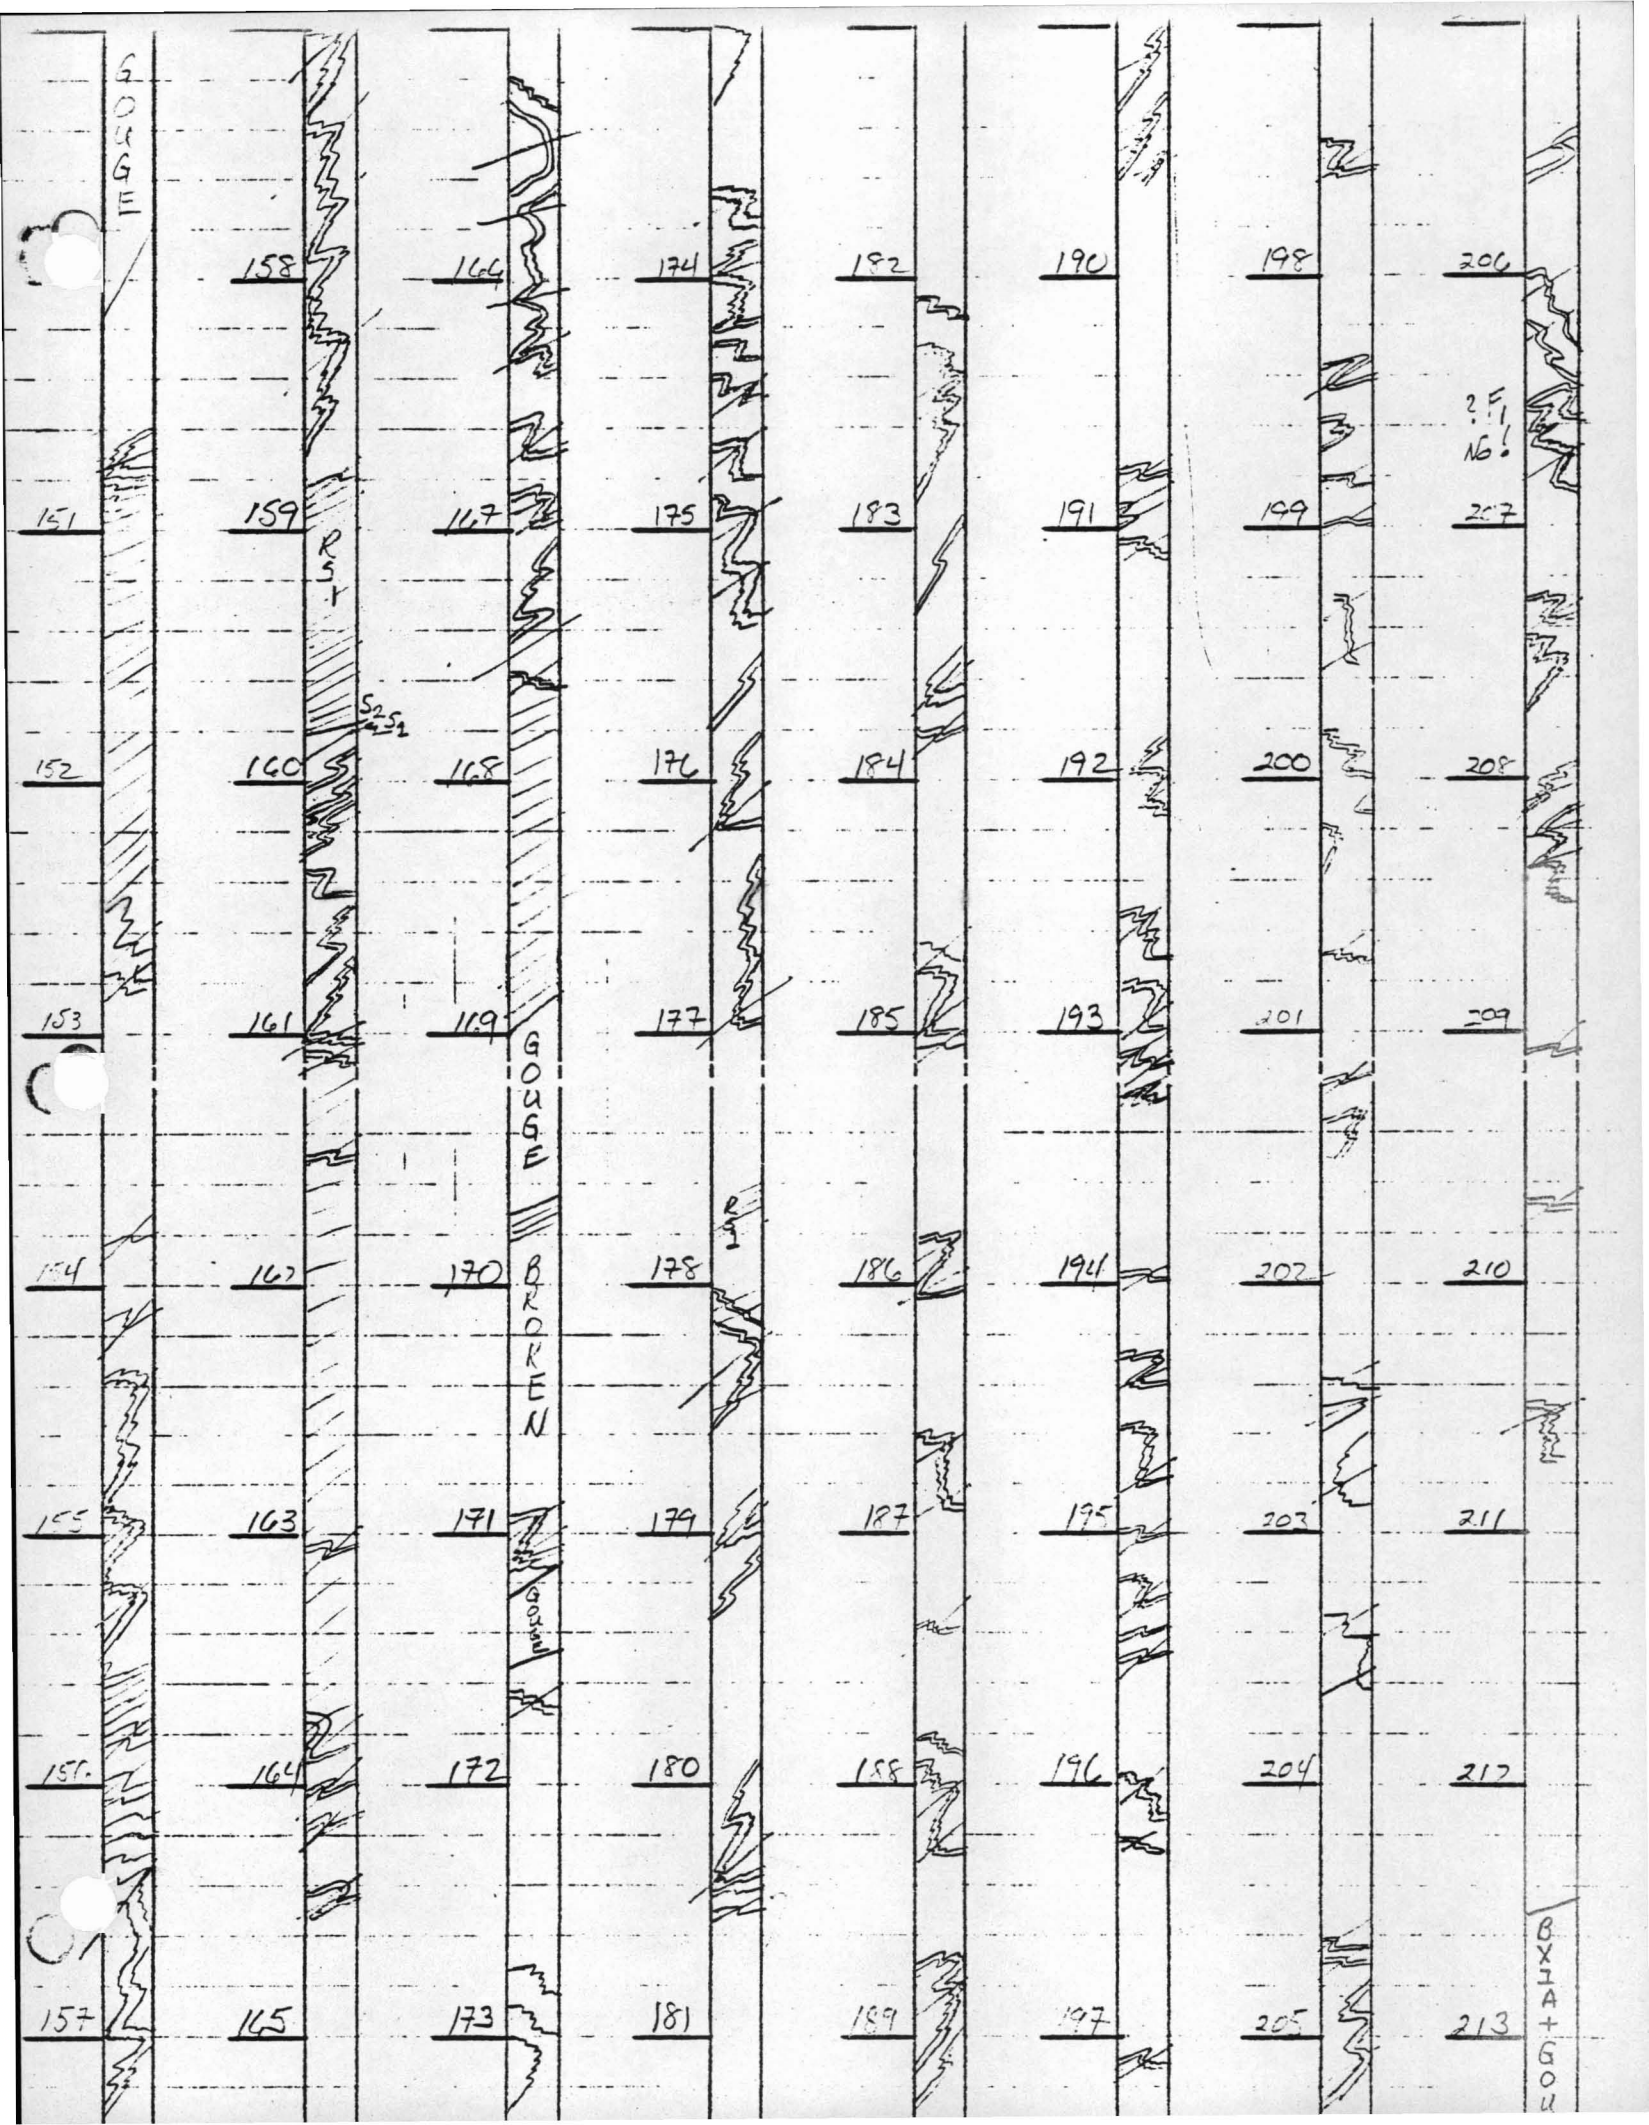 GOUGE
151
152
153
154
155
156
157
158
159
RS1
S2
S1
160
161
162
163
164
165
166
167
168
169
GOUGE
170
BROKEN
171
GOUGE
172
173
174
175
176
177
RS1
178
179
180
181
182
183
184
185
186
187
188
189
190
191
192
193
194
195
196
197
198
199
200
201
202
203
204
205
206
? F1
NO!
207
208
209
210
211
212
213
BXIA+GOU